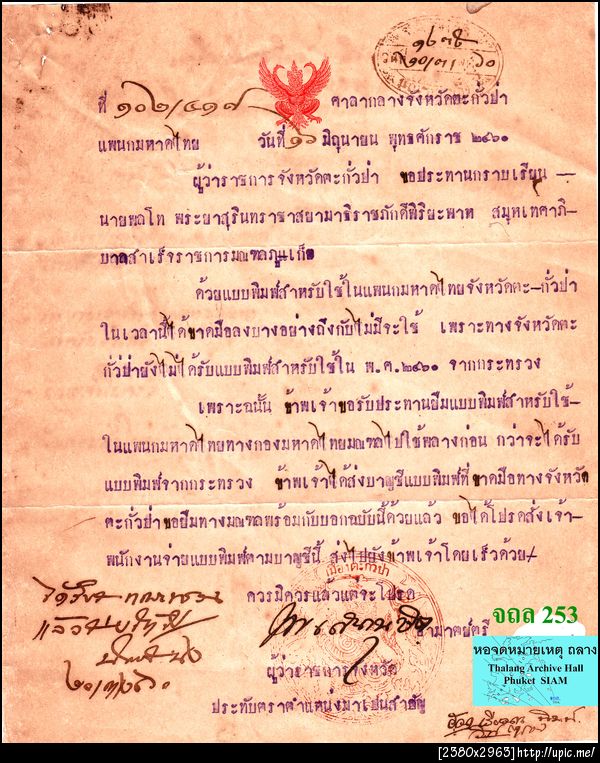 ที่ ๑๐๒/๔๑๗ ศาลากลางจังหวัดตะกั่วป่า
แพนกมหาดไทย วันที่ ๑๖ มิถุนายน พุทธศักราช ๒๔๖๐
ผู้ว่าราชการจังหวัดตะกั่วป่า ขอประทานกราบเรียน —
นายพลโท พระยาสุรินทราชาสยามาธิราชภักดีพิริยะพาห สมุหเทศาภิ-
บาลสำเร็จราชการมณฑลภูเก็ต
ด้วยแบบพิมพ์สำหรับใช้ในแพนกมหาดไทยจังหวัดตะ-กั่วป่า
ในเวลานี้ได้ขาดมือลงบางอย่างถึงกับไม่มีจะใช้ เพราะทางจังหวัดตะ
กั่วป่ายังไม่ได้รับแบบพิมพ์สำหรับใช้ใน พ.ศ.๒๔๖๐ จากกระทรวง
เพราะฉนั้น ข้าพเจ้าขอรับประทานยืมแบบพิมพ์สำหรับใช้-
ในแพนกมหาดไทยทางกองมหาดไทยมณฑลไปใช้พลางก่อน กว่าจะได้รับ
แบบพิมพ์จากกระทรวง ข้าพเจ้าได้ส่งบาญชีแบบพิมพ์ที่ขาดมือทางจังหวัด
ตะกั่วป่าขอยืมทางมณฑลพร้อมกับบอกฉบับนี้ด้วยแล้ว ขอได้โปรดสั่งเจ้า-
พนักงานจ่ายแบบพิมพ์ตามบาญชีนี้ ส่งไปยังข้าพเจ้าโดยเร็วด้วย/
เมืองตะกั่วป่า
ควรมิควรแล้วแต่จะโปรด
อำมาตย์ตรี
ผู้ว่าราชการจังหวัด
ประทับตราตำแหน่งมาเปนสำคัญ
จถล 253
หอจดหมายเหตุ ถลาง
Thalang Archive Hall
Phuket SIAM
[2380x2963]http://upic.me/